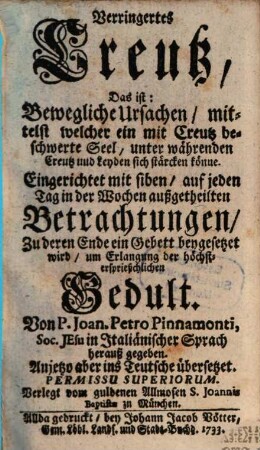 Verringertes
Creutz,
Das ist:
Bewegliche Ursachen / mit-
telst welcher ein mit Creutz be-
schwerte Seel, unter währenden
Creutz und Leyden sich stärcken könne.
Eingerichtet mit siben / auf jeden
Tag in der Wochen außgetheilten
Betrachtungen /
Zu deren Ende ein Gebett beygesetzet
wird / um Erlangung der höchst-
ersprießlichen
Gedult.
Von P. Joan. Petro Pinnamonti,
Soc. JEsu in Italiänischer Sprach
herauß gegeben.
Anjetzo aber ins Teutsche übersetzet.
PERMISSU SUPERIORUM.
Verlegt vom guldenen Allmosen S. Joannis
Baptistæ zu München.
Allda gedruckt / bey Johann Jacob Vötter,
Gem. Löbl. Landf. und Stadt-Buchd. 1733.